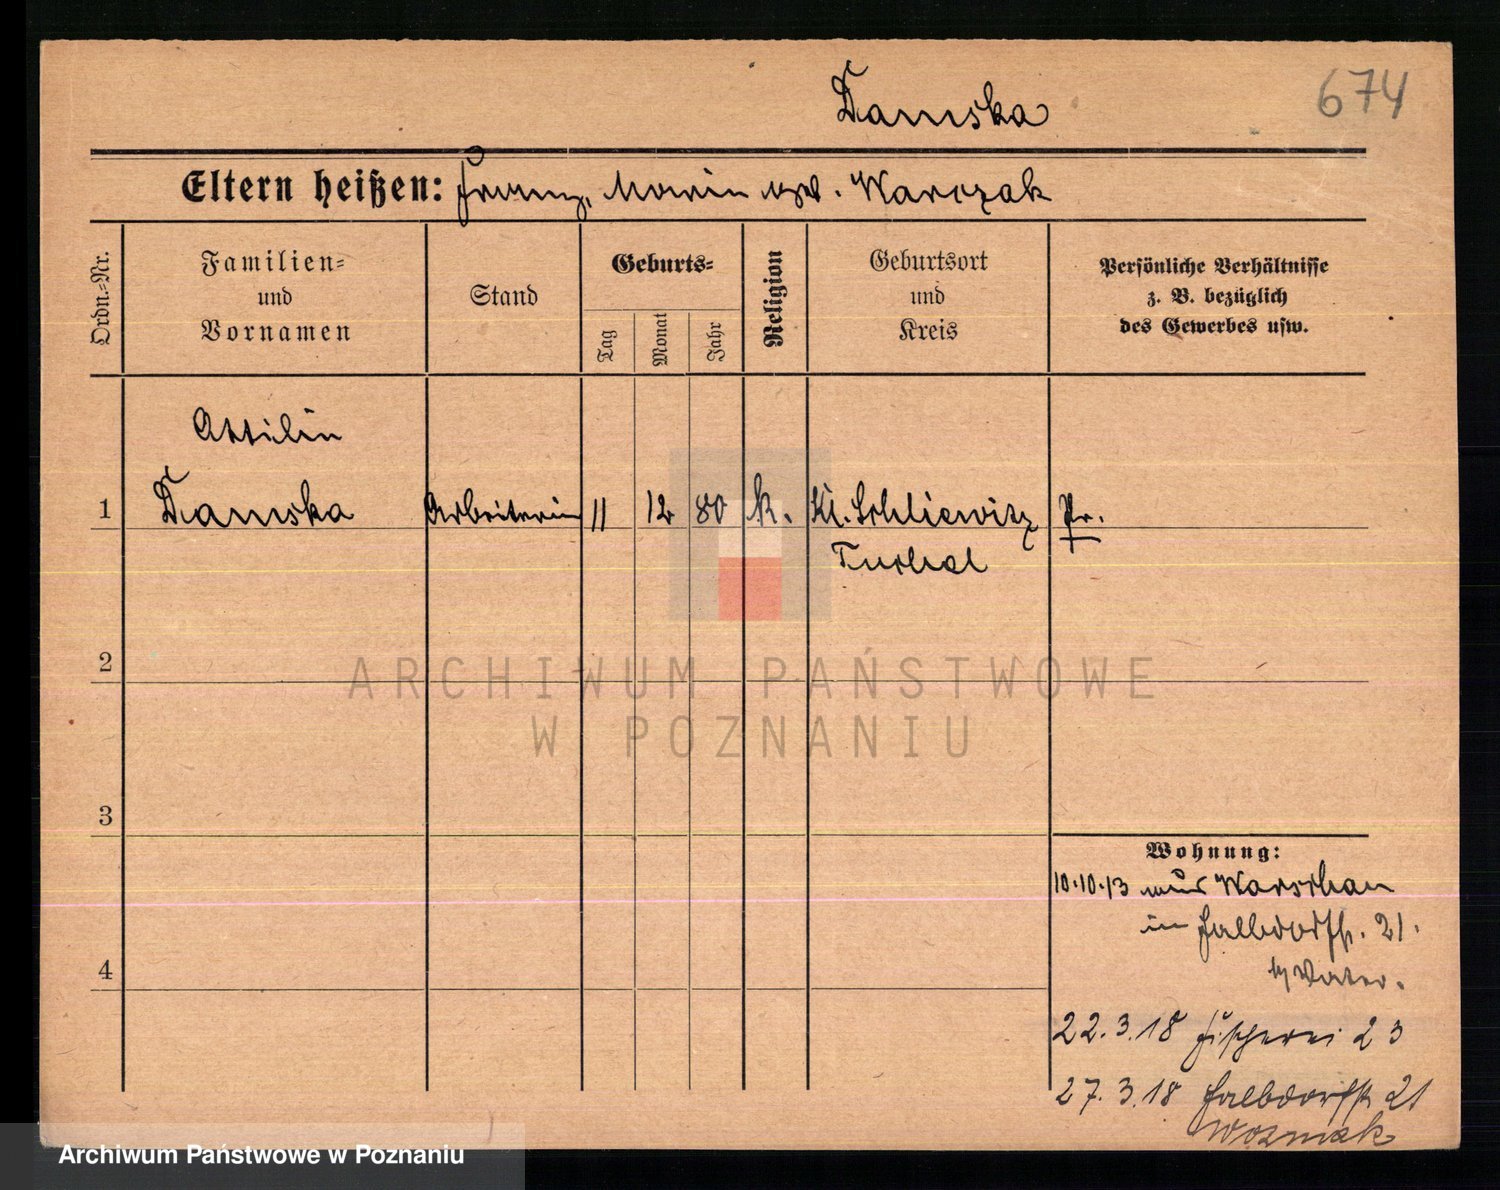 Damska
674
Eltern heißen: Franz, Maria geb. Warczak
Ordn.-Nr.
Familien-
und
Vornamen
Stand
Geburts-
Tag
Monat
Jahr
Religion
Geburtsort
und
Kreis
Persönliche Verhältnisse
z. B. bezüglich
des Gewerbes usw.
Ottilie
1 Damska Arbeiterin 11 12 80 k. Kl. Schliewitz Pr.
Tuchel
2
3
4
Wohnung:
10.10.13 aus Warschau
in Halbdorfstr. 21.
b/ Vater.
22.3.18 Fischerei 23
27.3.18 Halbdorfstr 21
Wozniak
ARCHIWUM PAŃSTWOWE
W POZNANIU
Archiwum Państwowe w Poznaniu